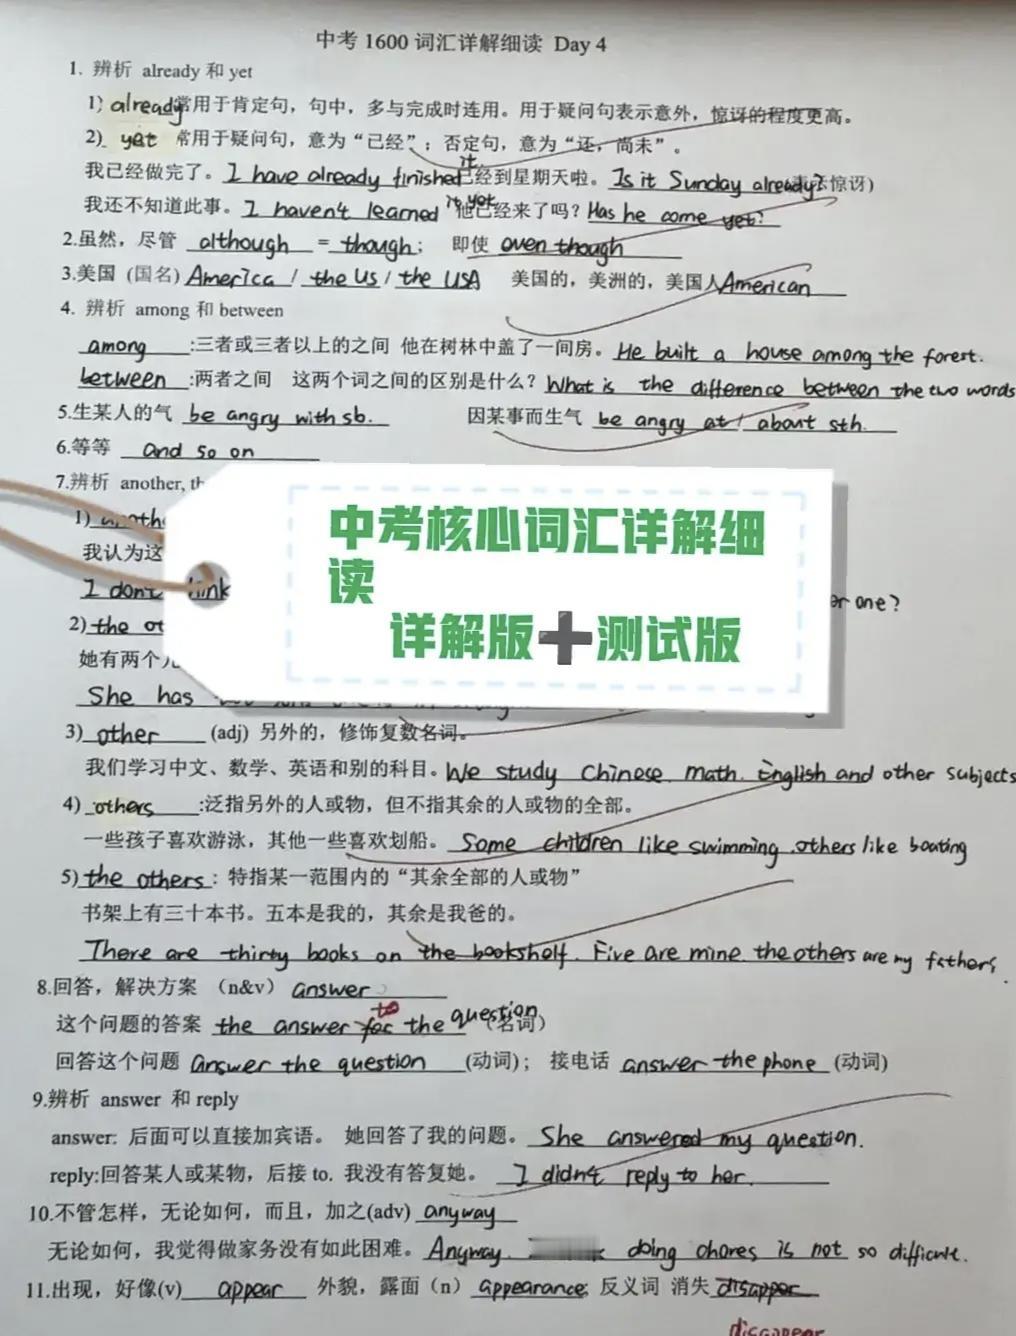 中考 1600 词汇详解细读 Day 4
1. 辨析 already 和 yet
1) already常用于肯定句，句中，多与完成时连用。用于疑问句表示意外，惊讶的程度更高。
2) yet 常用于疑问句，意为“已经”；否定句，意为“还，尚未”。
我已经做完了。I have already finished it 已经到星期天啦。Is it Sunday already? 惊讶)
我还不知道此事。I haven't learned it yet 他已经来了吗? Has he come yet?
2.虽然，尽管 although = though; 即使 even though
3.美国 (国名) America / the US / the USA 美国的，美洲的，美国人 American
4. 辨析 among 和 between
among :三者或三者以上的之间 他在树林中盖了一间房。He built a house among the forest.
between :两者之间 这两个词之间的区别是什么？What is the difference between the two words
5.生某人的气 be angry with sb. 因某事而生气 be angry at / about sth.
6.等等 and so on
7.辨析 another, th
1) anoth
我认为这
I don't think
or one?
2) the ot
她有两个儿
She has
3) other (adj) 另外的，修饰复数名词。
我们学习中文、数学、英语和别的科目。We study Chinese, math. English and other subjects
4) others :泛指另外的人或物，但不指其余的人或物的全部。
一些孩子喜欢游泳，其他一些喜欢划船。Some children like swimming .others like boating
5) the others : 特指某一范围内的“其余全部的人或物”
书架上有三十本书。五本是我的，其余是我爸的。
There are thirty books on the bookshelf. Five are mine the others are my fathers.
8.回答，解决方案 （n&v）answer
这个问题的答案 the answer for to the question (名词)
回答这个问题 answer the question (动词)； 接电话 answer the phone (动词)
9.辨析 answer 和 reply
answer: 后面可以直接加宾语。 她回答了我的问题。She answered my question.
reply:回答某人或某物，后接 to. 我没有答复她。 I didn't reply to her.
10.不管怎样，无论如何，而且，加之(adv) anyway
无论如何，我觉得做家务没有如此困难。Anyway. doing chores is not so difficult.
11.出现，好像(v) appear 外貌，露面（n）appearance; 反义词 消失 disapper
disappear
中考核心词汇详解细
读
详解版➕测试版